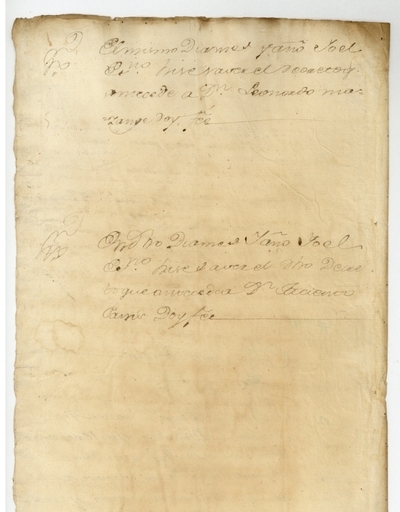 El mismo Dia mes y año Yo el
Es.no hise saver el Decreto q.
antecede a D.n Leonardo Ma-
doy fee
En d.ho Dia mes y año Yo el
Es.no hise saver el d.ho Decre
to que antecede a D.n
Doy fee